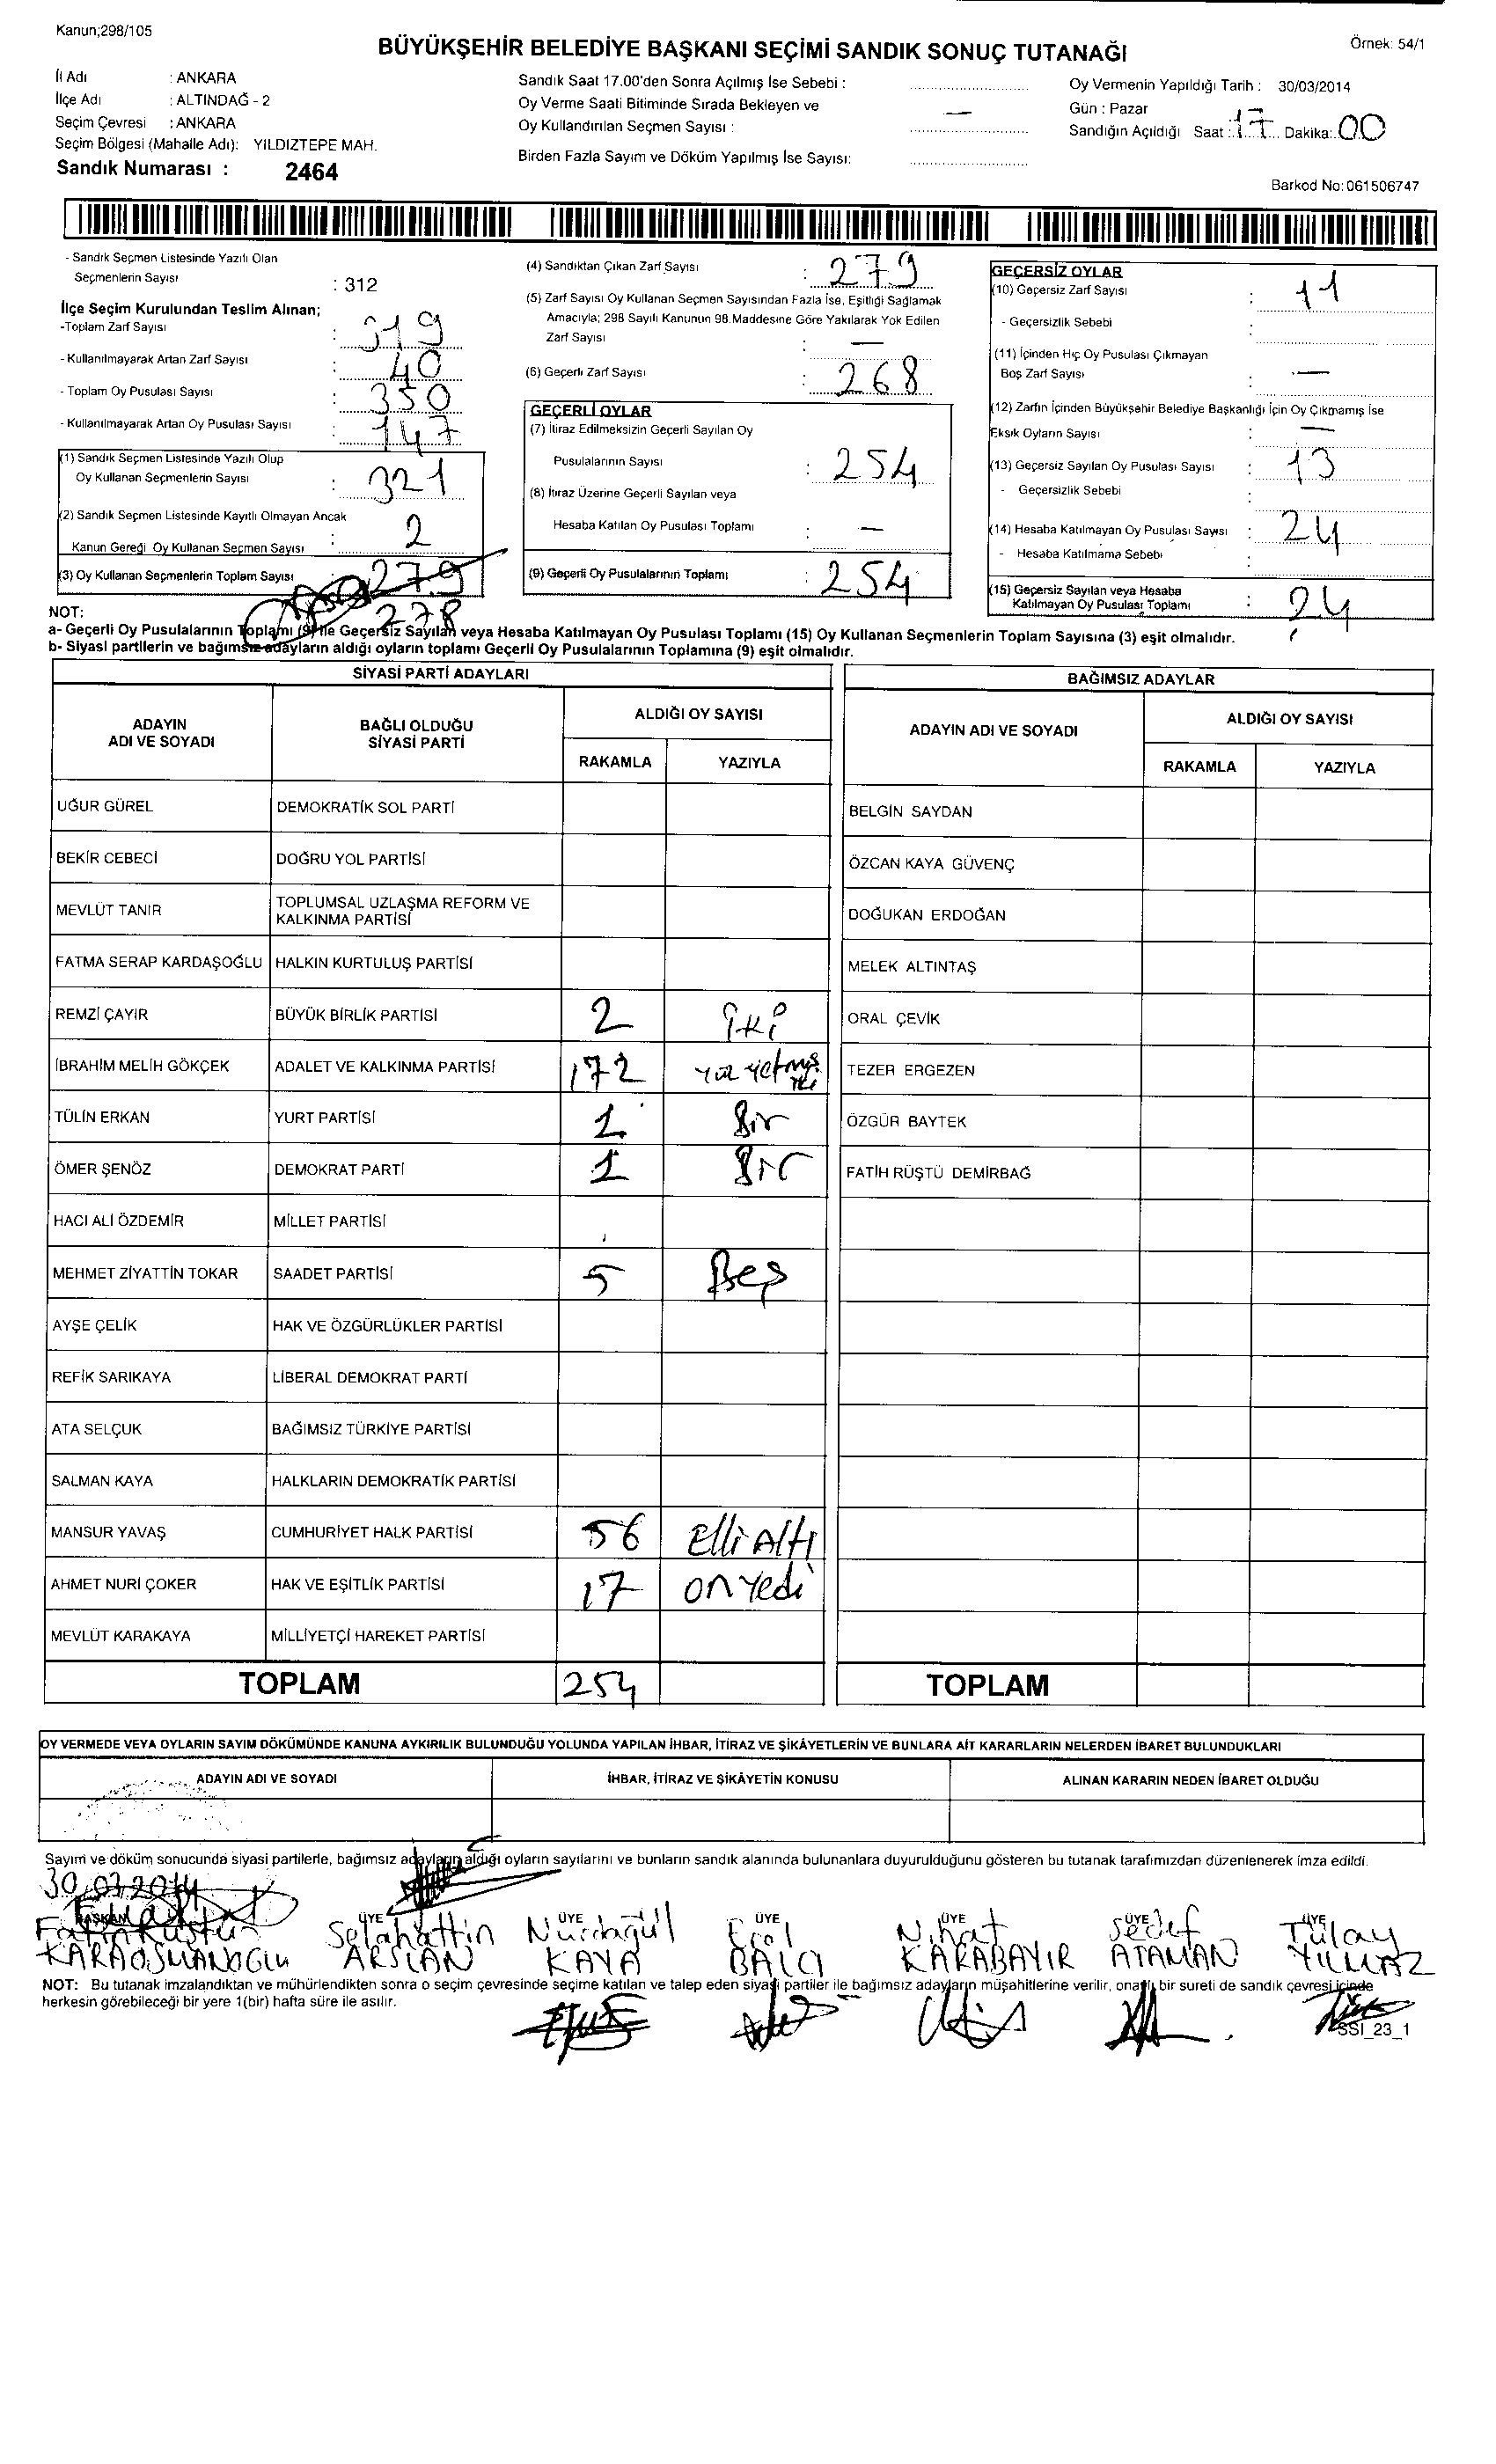 Kanun;298/105
BÜYÜKŞEHİR BELEDİYE BAŞKANI SEÇİMİ SANDIK SONUÇ TUTANAĞI
Örnek: 54/1
İl Adı : ANKARA
İlçe Adı : ALTINDAĞ - 2
Seçim Çevresi : ANKARA
Seçim Bölgesi (Mahalle Adı): YILDIZTEPE MAH.
Sandık Numarası : 2464
Sandık Saat 17.00'den Sonra Açılmış İse Sebebi :
Oy Verme Saati Bitiminde Sırada Bekleyen ve
Oy Kullandırılan Seçmen Sayısı : —
Birden Fazla Sayım ve Döküm Yapılmış İse Sayısı:
Oy Vermenin Yapıldığı Tarih : 30/03/2014
Gün : Pazar
Sandığın Açıldığı Saat : 17 Dakika: 00
Barkod No:061506747
- Sandık Seçmen Listesinde Yazılı Olan
Seçmenlerin Sayısı : 312
İlçe Seçim Kurulundan Teslim Alınan;
-Toplam Zarf Sayısı : 319
- Kullanılmayarak Artan Zarf Sayısı : 40
- Toplam Oy Pusulası Sayısı : 350
- Kullanılmayarak Artan Oy Pusulası Sayısı : 147
(1) Sandık Seçmen Listesinde Yazılı Olup
Oy Kullanan Seçmenlerin Sayısı : 321
(2) Sandık Seçmen Listesinde Kayıtlı Olmayan Ancak
Kanun Gereği Oy Kullanan Seçmen Sayısı : 2
(3) Oy Kullanan Seçmenlerin Toplam Sayısı : 279
278
(4) Sandıktan Çıkan Zarf Sayısı : 279
(5) Zarf Sayısı Oy Kullanan Seçmen Sayısından Fazla İse, Eşitliği Sağlamak
Amacıyla; 298 Sayılı Kanunun 98.Maddesine Göre Yakılarak Yok Edilen
Zarf Sayısı : —
(6) Geçerli Zarf Sayısı : 268
GEÇERLİ OYLAR
(7) İtiraz Edilmeksizin Geçerli Sayılan Oy
Pusulalarının Sayısı : 254
(8) İtiraz Üzerine Geçerli Sayılan veya
Hesaba Katılan Oy Pusulası Toplamı : —
(9) Geçerli Oy Pusulalarının Toplamı : 254
GEÇERSİZ OYLAR
(10) Geçersiz Zarf Sayısı : 11
- Geçersizlik Sebebi :
(11) İçinden Hiç Oy Pusulası Çıkmayan
Boş Zarf Sayısı : —
(12) Zarfın İçinden Büyükşehir Belediye Başkanlığı İçin Oy Çıkmamış İse
Eksik Oyların Sayısı : —
(13) Geçersiz Sayılan Oy Pusulası Sayısı : 13
- Geçersizlik Sebebi :
(14) Hesaba Katılmayan Oy Pusulası Sayısı : 24
- Hesaba Katılmama Sebebi :
(15) Geçersiz Sayılan veya Hesaba
Katılmayan Oy Pusulası Toplamı : 24
NOT:
a- Geçerli Oy Pusulalarının Toplamı (9) ile Geçersiz Sayılan veya Hesaba Katılmayan Oy Pusulası Toplamı (15) Oy Kullanan Seçmenlerin Toplam Sayısına (3) eşit olmalıdır.
b- Siyasi partilerin ve bağımsız adayların aldığı oyların toplamı Geçerli Oy Pusulalarının Toplamına (9) eşit olmalıdır.
SİYASİ PARTİ ADAYLARI
ADAYIN ADI VE SOYADI BAĞLI OLDUĞU SİYASİ PARTİ ALDIĞI OY SAYISI
RAKAMLA YAZIYLA
UĞUR GÜREL DEMOKRATİK SOL PARTİ
BEKİR CEBECİ DOĞRU YOL PARTİSİ
MEVLÜT TANIR TOPLUMSAL UZLAŞMA REFORM VE KALKINMA PARTİSİ
FATMA SERAP KARDAŞOĞLU HALKIN KURTULUŞ PARTİSİ
REMZİ ÇAYIR BÜYÜK BİRLİK PARTİSİ 2 iki
İBRAHİM MELİH GÖKÇEK ADALET VE KALKINMA PARTİSİ 172 yüz yetmiş iki
TÜLİN ERKAN YURT PARTİSİ 1 Bir
ÖMER ŞENÖZ DEMOKRAT PARTİ 1 Bir
HACI ALİ ÖZDEMİR MİLLET PARTİSİ
MEHMET ZİYATTİN TOKAR SAADET PARTİSİ 5 Beş
AYŞE ÇELİK HAK VE ÖZGÜRLÜKLER PARTİSİ
REFİK SARIKAYA LİBERAL DEMOKRAT PARTİ
ATA SELÇUK BAĞIMSIZ TÜRKİYE PARTİSİ
SALMAN KAYA HALKLARIN DEMOKRATİK PARTİSİ
MANSUR YAVAŞ CUMHURİYET HALK PARTİSİ 56 Elli Altı
AHMET NURİ ÇOKER HAK VE EŞİTLİK PARTİSİ 17 on Yedi
MEVLÜT KARAKAYA MİLLİYETÇİ HAREKET PARTİSİ
TOPLAM 254
BAĞIMSIZ ADAYLAR
ADAYIN ADI VE SOYADI ALDIĞI OY SAYISI
RAKAMLA YAZIYLA
BELGİN SAYDAN
ÖZCAN KAYA GÜVENÇ
DOĞUKAN ERDOĞAN
MELEK ALTINTAŞ
ORAL ÇEVİK
TEZER ERGEZEN
ÖZGÜR BAYTEK
FATİH RÜŞTÜ DEMİRBAĞ
TOPLAM
OY VERMEDE VEYA OYLARIN SAYIM DÖKÜMÜNDE KANUNA AYKIRILIK BULUNDUĞU YOLUNDA YAPILAN İHBAR, İTİRAZ VE ŞİKÂYETLERİN VE BUNLARA AİT KARARLARIN NELERDEN İBARET BULUNDUKLARI
ADAYIN ADI VE SOYADI İHBAR, İTİRAZ VE ŞİKÂYETİN KONUSU ALINAN KARARIN NEDEN İBARET OLDUĞU
Sayım ve döküm sonucunda siyasi partilerle, bağımsız adayların aldığı oyların sayılarını ve bunların sandık alanında bulunanlara duyurulduğunu gösteren bu tutanak tarafımızdan düzenlenerek imza edildi.
30.03.2014
BAŞKAN ÜYE ÜYE ÜYE ÜYE ÜYE ÜYE
Selahattin Nurdagül Erol Nihat Sedef Tülay
KARAOSMANOGLU ARSLAN KAYA BALCI KARABAYIR ATAMAN YILMAZ
NOT: Bu tutanak imzalandıktan ve mühürlendikten sonra o seçim çevresinde seçime katılan ve talep eden siyasi partiler ile bağımsız adayların müşahitlerine verilir, onaylı bir sureti de sandık çevresi içinde
herkesin görebileceği bir yere 1(bir) hafta süre ile asılır.
SSI_23_1